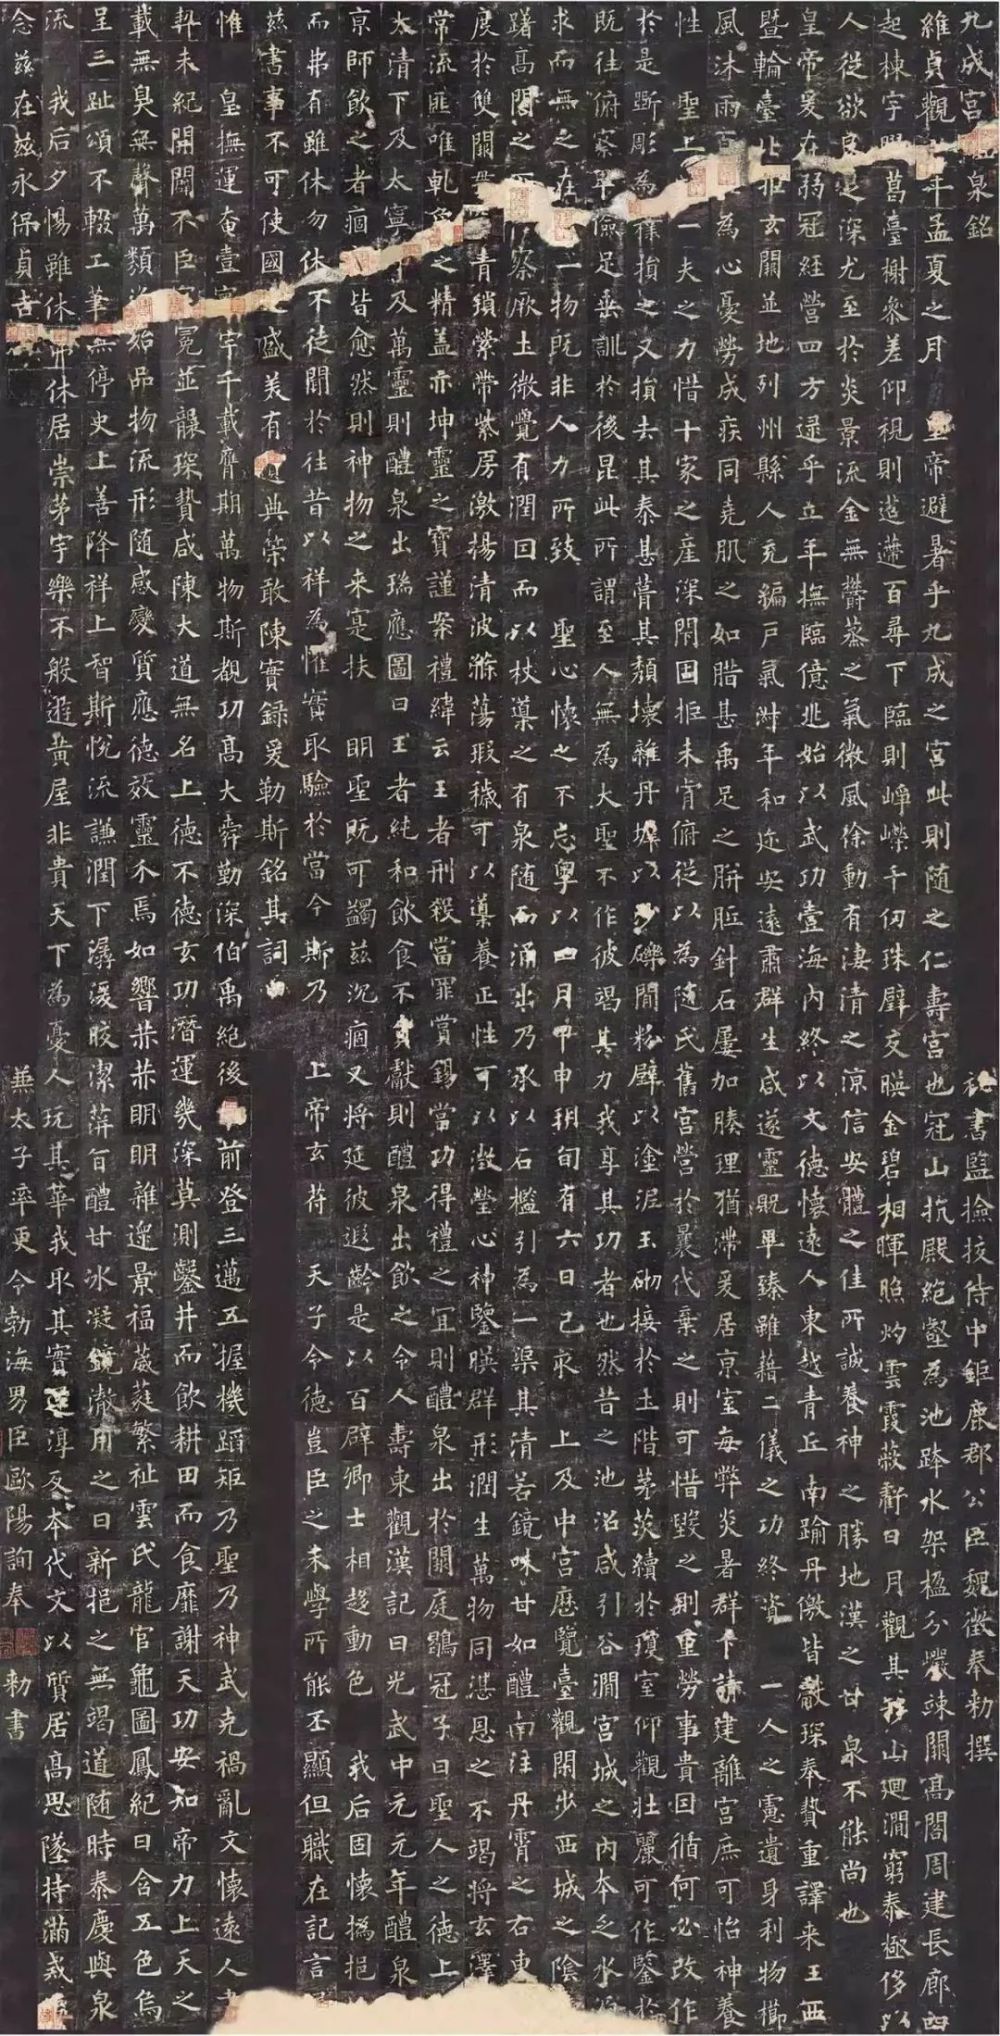 九成宮 泉銘 秘書監撿挍侍中鉅鹿郡公臣魏徵奉勅撰
維貞觀 年孟夏之月 皇帝避暑乎九成之宮此則隨之仁壽宮也冠山抗殿絕壑為池跨水架楹分巖竦闕高閣周建長廊四
起棟宇膠葛臺榭參差仰視則迢遰百尋下臨則崢嶸千仞珠璧交暎金碧相暉照灼雲霞蔽虧日月觀其移山廻澗窮泰極侈以
人從欲良足深尤至於炎景流金無欝蒸之氣微風徐動有淒清之涼信安體之佳所誠養神之勝地漢之甘泉不能尚也
皇帝爰在弱冠經營四方逮乎立年撫臨億兆始以武功壹海內終以文德懷遠人東越青丘南踰丹儌皆獻琛奉贄重譯来王西
暨輪臺北拒玄闕並地列州縣人充編戶氣淑年和迩安遠肅群生咸遂靈貺畢臻雖藉二儀之功終資 一人之慮遺身利物櫛
風沐雨百 為心憂勞成疾同堯肌之如腊甚禹足之胼胝針石屢加腠理猶滯爰居京室每弊炎暑群下請建離宮庶可怡神養
性 聖上 一夫之力惜十家之產深閇固拒未肯俯從以為隨氏舊宮營於曩代棄之則可惜毀之則重勞事貴因循何必改作
於是斲彫為樸損之又損去其泰甚葺其頹壞雜丹墀以沙礫間粉壁以塗泥玉砌接於土階茅茨續於瓊室仰觀壯麗可作鑒於
既往俯察卑儉足垂訓於後昆此所謂至人無為大聖不作彼竭其力我享其功者也然昔之池沼咸引谷澗宮城之內本乏水源
求而無之在 一物既非人力所致 聖心懷之不忘粵以四月甲申朔旬有六日己亥 上及中宮歷覽臺觀閑步西城之陰
躇高閣之 察厥土微覺有潤因而以杖導之有泉隨而涌出乃承以石檻引為一渠其清若鏡味甘如醴南注丹霄之右東
度於雙闕 青瑣縈帶紫房激揚清波滌蕩瑕穢可以導養正性可以澂瑩心神鑒暎群形潤生萬物同湛恩之不竭將玄澤
常流匪唯乹象之精盖亦坤靈之寶謹案禮緯云王者刑殺當罪賞錫當功得禮之宜則醴泉出於闕庭鶡冠子曰聖人之德上
太清下及太寧 及萬靈則醴泉出瑞應圖曰王者純和飲食不貢獻則醴泉出飲之令人壽東觀漢記曰光武中元元年醴泉
京師飲之者痼 皆愈然則神物之来寔扶 明聖既可蠲茲沉痼又將延彼遐齡是以百辟卿士相趍動色 我后固懷撝挹
而弗有雖休勿休不徒聞於往昔以祥為懼實取驗於當今斯乃 上帝玄符 天子令德豈臣之末學所能丕顯但職在記言
茲書事不可使國 盛美有遺典策敢陳實錄爰勒斯銘其詞曰
惟 皇撫運奄壹 宇千載膺期萬物斯覩功高大舜勤深伯禹絕後 前登三邁五握機蹈矩乃聖乃神武克禍亂文懷遠人
契未紀開闢不臣 冕並襲琛贄咸陳大道無名上德不德玄功潛運幾深莫測鑿井而飲耕田而食靡謝天功安知帝力上天之
載無臭無聲萬類 始品物流形隨感變質應德效靈介焉如響赫赫明明雜遝景福葳蕤繁祉雲氏龍官龜圖鳳紀日含五色烏
呈三趾頌不輟工筆無停史上善降祥上智斯悅流謙潤下潺湲皎潔蓱旨醴甘冰凝鏡澈用之日新挹之無竭道隨時泰慶與泉
流 我后夕惕雖休 休居崇茅宇樂不般遊黃屋非貴天下為憂人玩其華我取其實還淳反本代文以質居高思墜持滿戒
念茲在茲永保貞吉 兼太子率更令勃海男臣歐陽詢奉 勅書